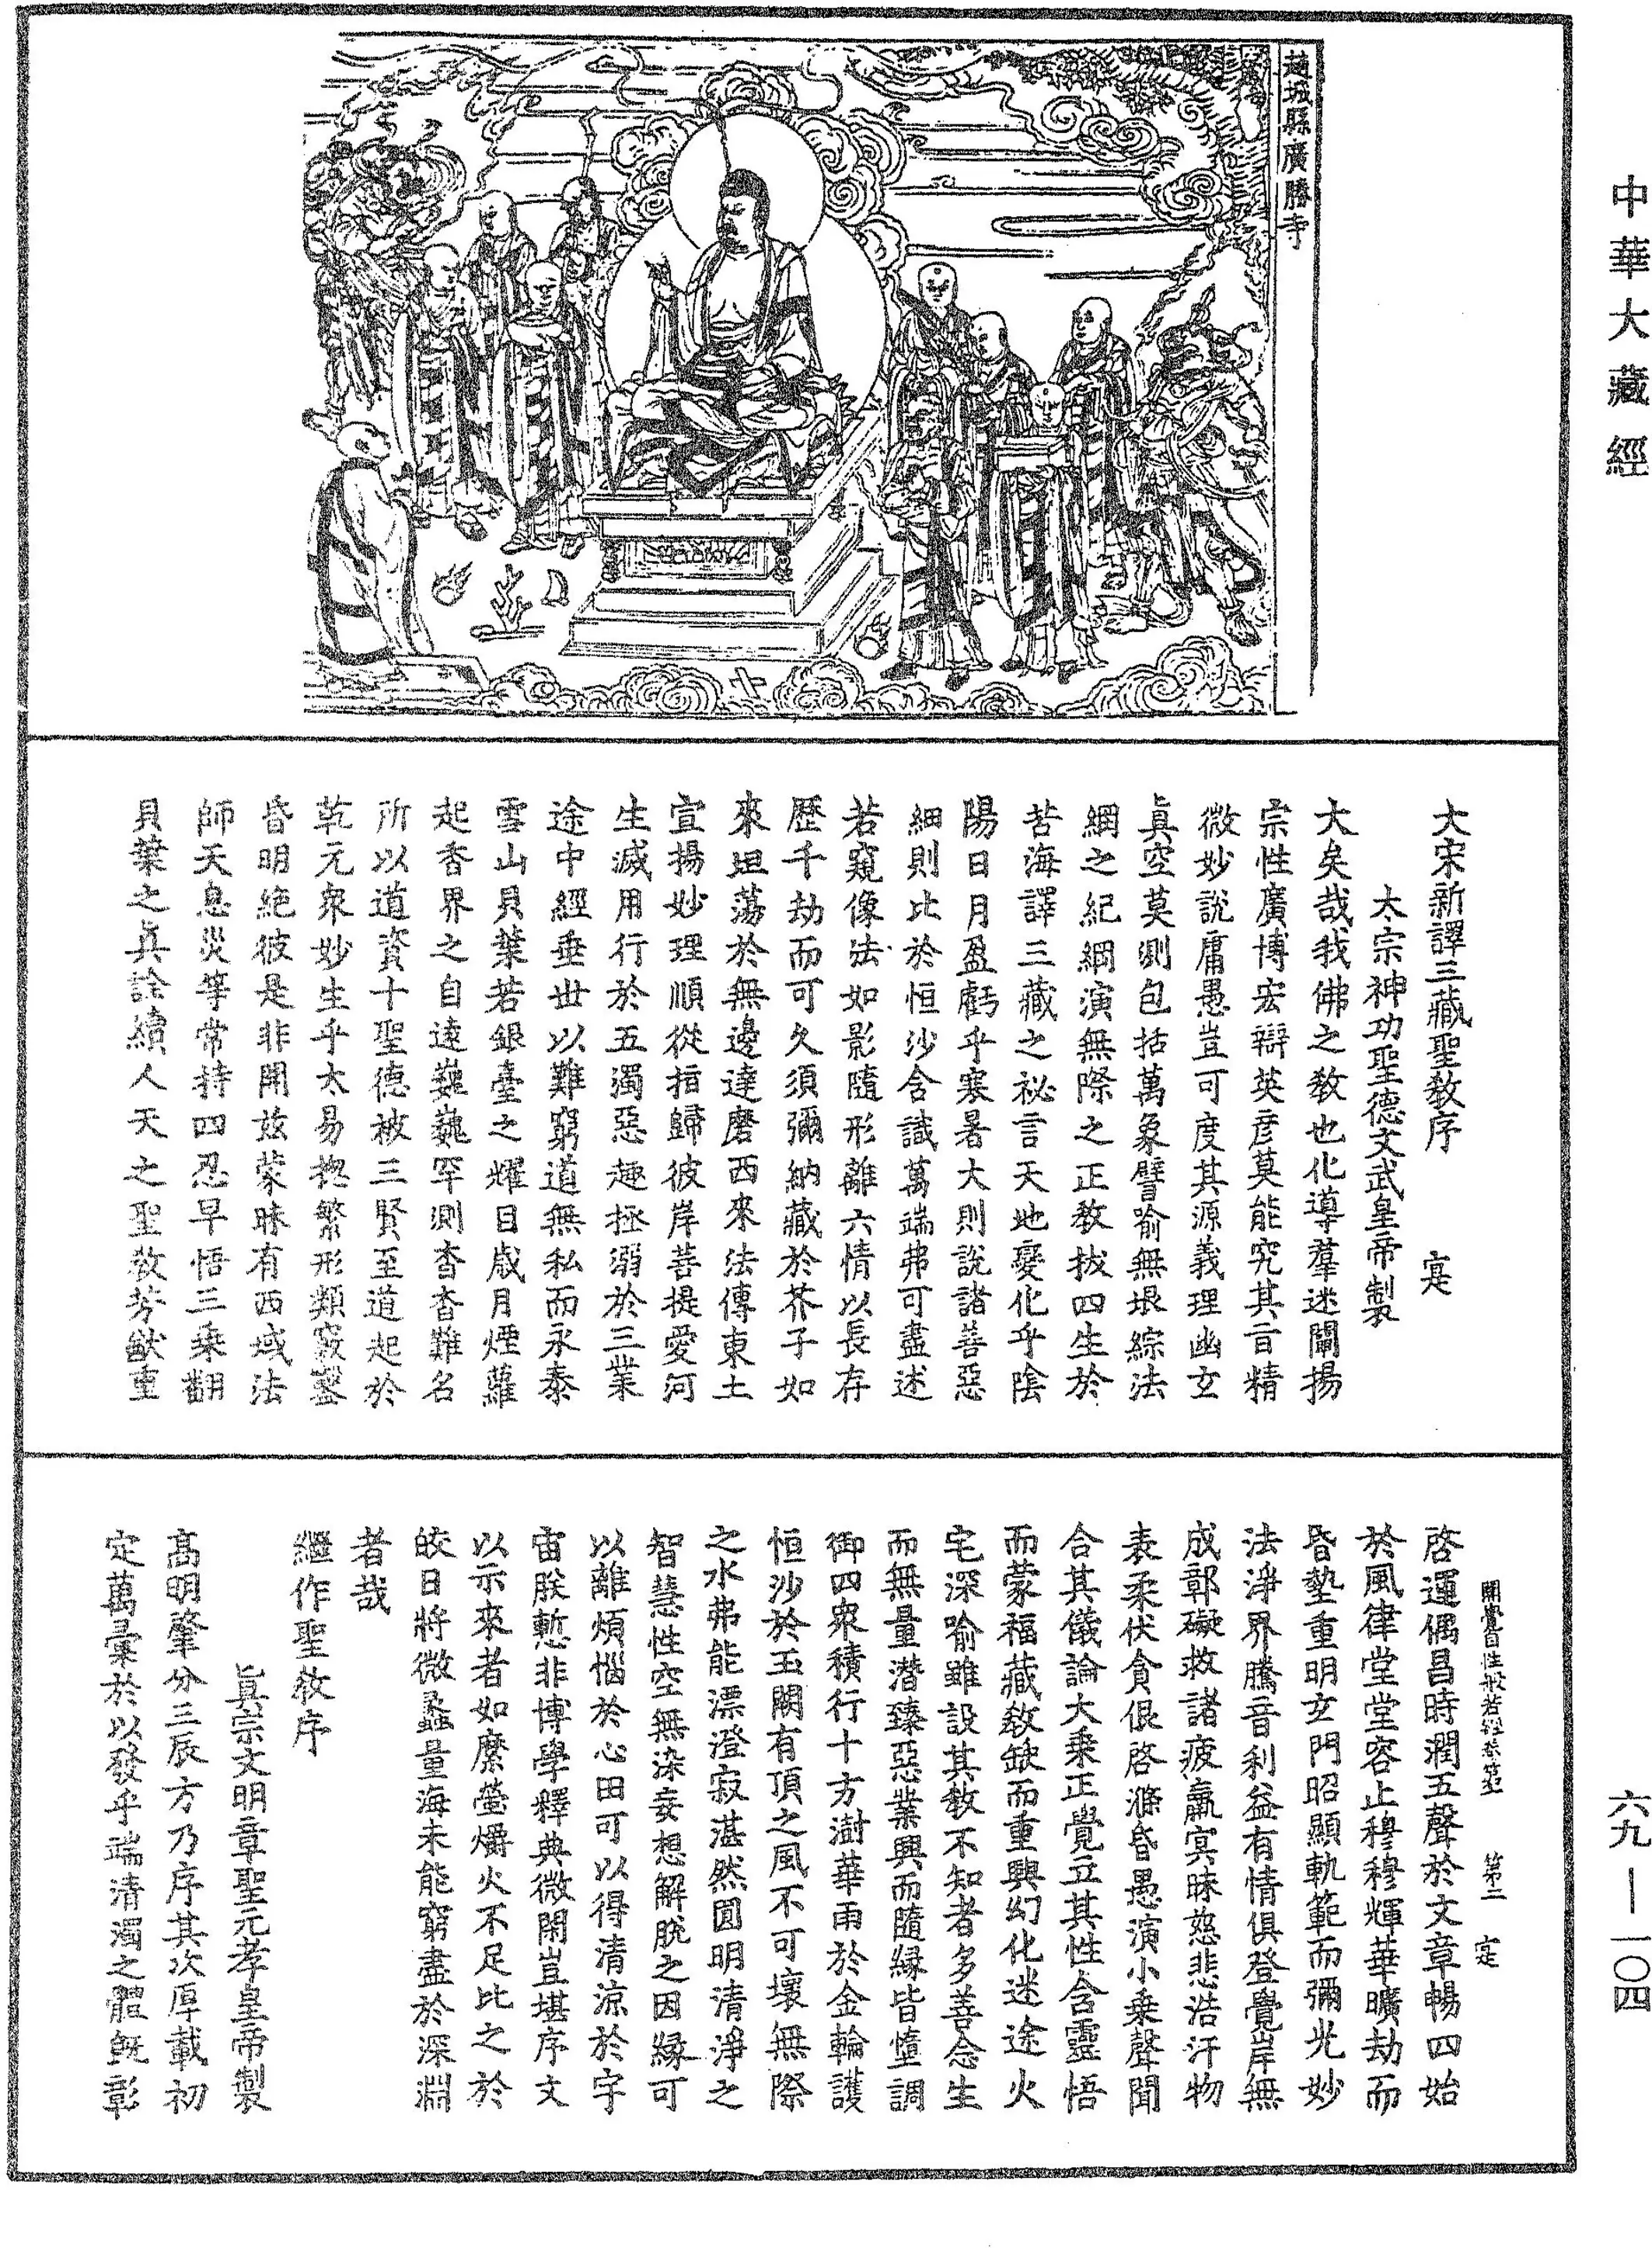 中華大藏經
趙城縣廣勝寺
大宋新譯三藏聖教序　寔
太宗神功聖德文武皇帝製
大矣哉我佛之教也化導羣迷闡揚
宗性廣博宏辯英彥莫能究其旨精
微妙說庸愚豈可度其源義理幽玄
眞空莫測包括萬象譬喻無垠綜法
網之紀綱演無際之正教拔四生於
苦海譯三藏之祕言天地變化乎陰
陽日月盈虧乎寒暑大則說諸善惡
細則比於恒沙含識萬端弗可盡述
若窺像法如影隨形離六情以長存
歷千劫而可久須彌納藏於芥子如
來坦蕩於無邊達磨西來法傳東土
宣揚妙理順從指歸彼岸菩提愛河
生滅用行於五濁惡趣拯溺於三業
途中經垂世以難窮道無私而永泰
雪山貝葉若銀臺之耀目歲月煙蘿
起香界之自遠巍巍罕測杳杳難名
所以道資十聖德被三賢至道起於
乾元衆妙生乎太易摠繁形類竅鑿
昏明絕彼是非開兹蒙昧有西域法
師天息災等常持四忍早悟三乘翻
貝葉之眞詮續人天之聖教芳猷重
開覺自性般若經卷第　第二　寔
啓運偶昌時潤五聲於文章暢四始
於風律堂堂容止穆穆輝華曠劫而
昏墊重明玄門昭顯軌範而彌光妙
法淨界騰音利益有情俱登覺岸無
成鄣礙救諸疲羸冥昧慈悲浩汗物
表柔伏貪佷啓滌昏愚演小乘聲聞
合其儀論大乘正覺立其性含靈悟
而蒙福藏教缺而重興幻化迷途火
宅深喻雖設其教不知者多善念生
而無量潛臻惡業興而隨緣皆墮調
御四衆積行十方澍華雨於金輪護
恒沙於玉闕有頂之風不可壞無際
之水弗能漂澄寂湛然圓明清淨之
智慧性空無染妄想解脫之因緣可
以離煩惱於心田可以得清涼於宇
宙朕慙非博學釋典微閑豈堪序文
以示來者如縻螢爝火不足比之於
皎日將微蠡量海未能窮盡於深淵
者哉
繼作聖教序
眞宗文明章聖元孝皇帝製
高明肇分三辰方乃序其次厚載初
定萬彙於以發乎端清濁之體旣彰
六九—一〇四